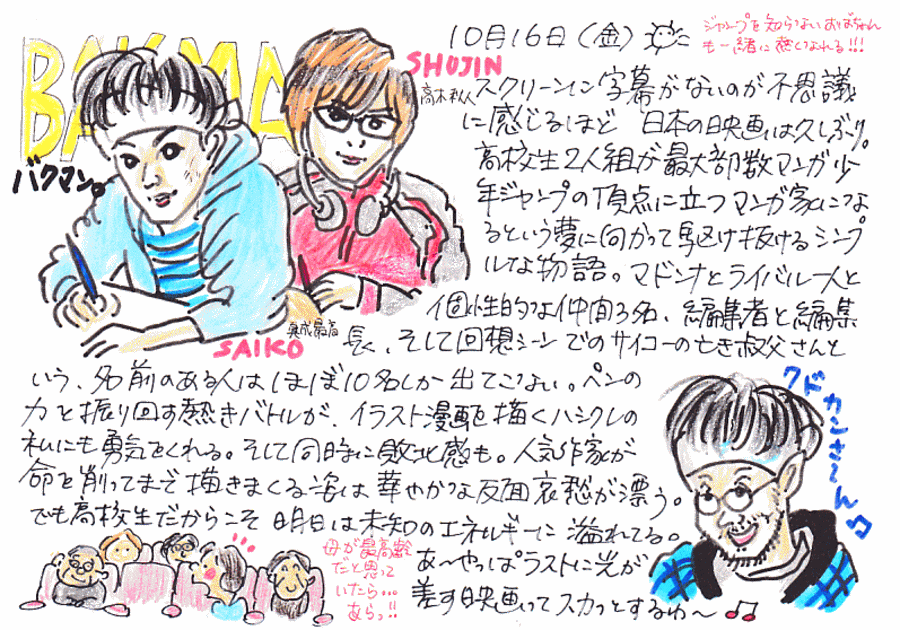 10月16日(金)
ジャンプを知らないおばちゃん
も一緒に熱くなれる!!!
BAKUMA
バクマン。
SHUJIN
高木秋人
SAIKO
真城最高
スクリーンに字幕がないのが不思議
に感じるほど 日本の映画は久しぶり。
高校生2人組が最大部数マンガ少
年ジャンプの頂点に立つマンガ家にな
るという夢に向かって駆け抜けるシンプ
ルな物語。マドンナとライバル一人と
個性的な仲間3名、編集者と編集
長、そして回想シーンでのサイコーの亡き叔父さんと
いう、名前のある人はほぼ10名しか出てこない。ペンの
力を振り回す熱きバトルが、イラスト漫画を描くハシクレの
私にも勇気をくれる。そして同時に敗北感も。人気作家が
命を削ってまで描きまくる姿は華やかな反面哀愁が漂う。
でも高校生だからこそ明日は未知のエネルギーに溢れてる。
あ〜やっぱラストに光が
差す映画ってスカッとするわ〜♫
母が最高齢
だと思って
いたら…
あらっ!!
クドカンさ〜ん♫